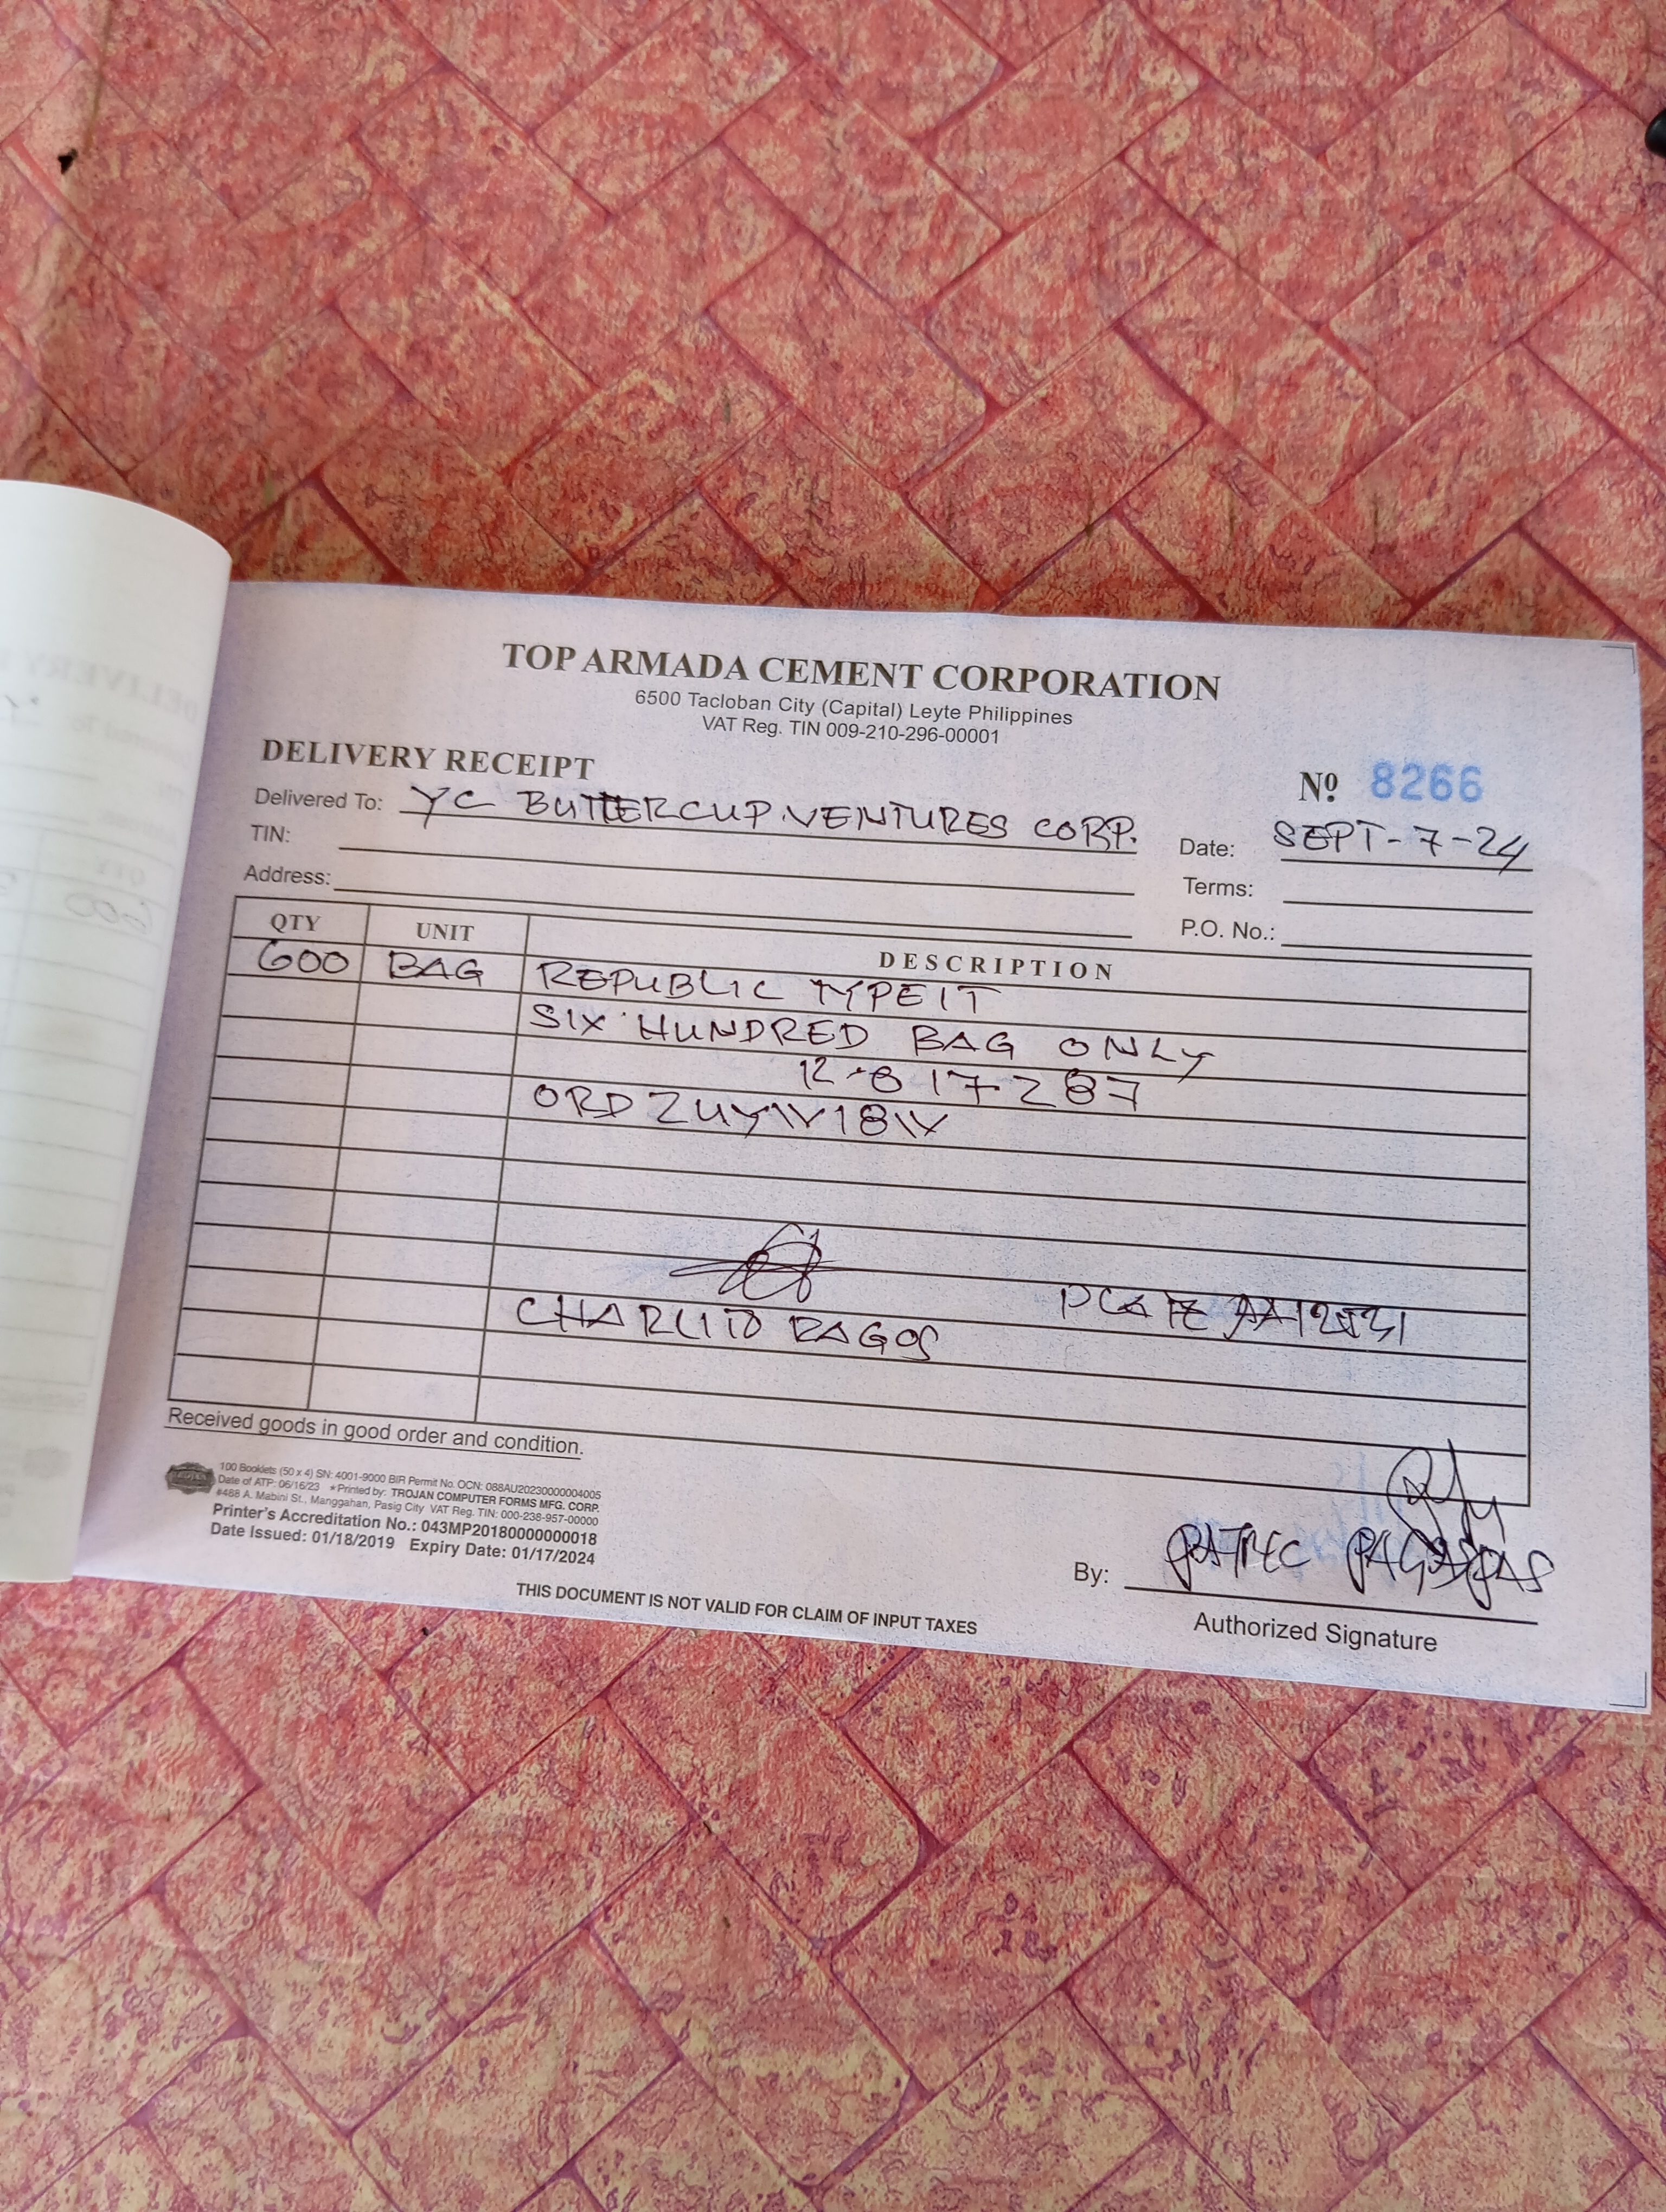 TOP ARMADA CEMENT CORPORATION
6500 Tacloban City (Capital) Leyte Philippines
VAT Reg. TIN 009-210-296-00001
DELIVERY RECEIPT
Nº 8266
Delivered To: YC BUTTERCUP VENTURES CORP.
Date: SEPT-7-24
TIN:
Terms:
Address:
P.O. No.:
QTY UNIT DESCRIPTION
600 BAG REPUBLIC TYPE1T
SIX HUNDRED BAG ONLY
12-817287
ORD
PLATE
CHARLITO RAGOS
Received goods in good order and condition.
100 Booklets (50 x 4) SN: 4001-9000 BIR Permit No. OCN: 088AU20230000004005
Date of ATP: 06/16/23 *Printed by: TROJAN COMPUTER FORMS MFG. CORP.
#488 A. Mabini St., Manggahan, Pasig City VAT Reg. TIN: 000-238-957-00000
Printer's Accreditation No.: 043MP20180000000018
Date Issued: 01/18/2019 Expiry Date: 01/17/2024
By:
Authorized Signature
THIS DOCUMENT IS NOT VALID FOR CLAIM OF INPUT TAXES